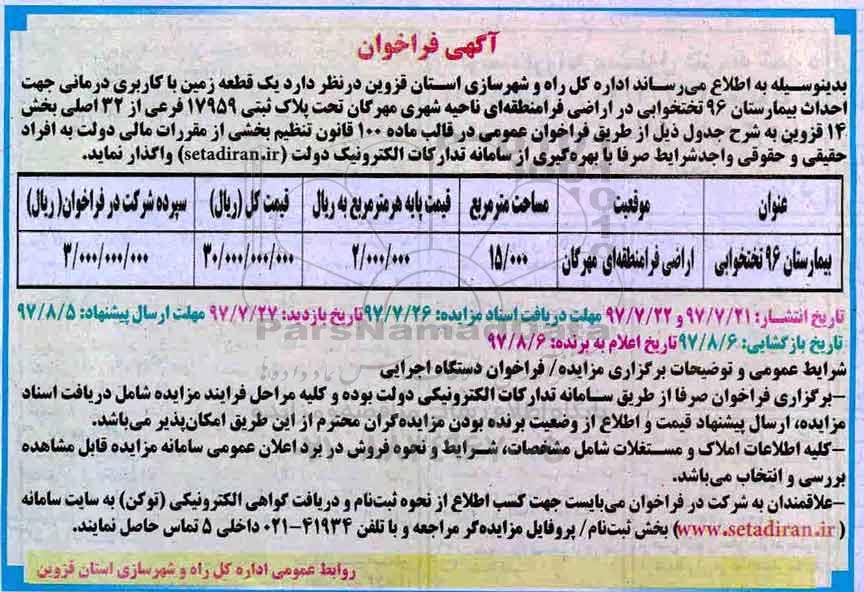 آگهی فراخوان
بدینوسیله به اطلاع می‌رساند اداره کل راه و شهرسازی استان قزوین درنظر دارد یک قطعه زمین با کاربری درمانی جهت
احداث بیمارستان ۹۶ تختخوابی در اراضی فرامنطقه‌ای ناحیه شهری مهرگان تحت پلاک ثبتی ۱۷۹۵۹ فرعی از ۳۲ اصلی بخش
۱۴ قزوین به شرح جدول ذیل از طریق فراخوان عمومی در قالب ماده ۱۰۰ قانون تنظیم بخشی از مقررات مالی دولت به افراد
حقیقی و حقوقی واجدشرایط صرفا با بهره‌گیری از سامانه تدارکات الکترونیک دولت (setadiran.ir) واگذار نماید.
عنوان موقعیت مساحت مترمربع قیمت پایه هر مترمربع به ریال قیمت کل (ریال) سپرده شرکت در فراخوان( ریال)
بیمارستان ۹۶ تختخوابی اراضی فرامنطقه‌ای مهرگان ۱۵/۰۰۰ ۲/۰۰۰/۰۰۰ ۳۰/۰۰۰/۰۰۰/۰۰۰ ۳/۰۰۰/۰۰۰/۰۰۰
تاریخ انتشار: ۹۷/۷/۲۱ و ۹۷/۷/۲۲ مهلت دریافت اسناد مزایده: ۹۷/۷/۲۶ تاریخ بازدید: ۹۷/۷/۲۷ مهلت ارسال پیشنهاد: ۹۷/۸/۵
تاریخ بازگشایی: ۹۷/۸/۶ تاریخ اعلام به برنده: ۹۷/۸/۶
شرایط عمومی و توضیحات برگزاری مزایده/ فراخوان دستگاه اجرایی
–برگزاری فراخوان صرفا از طریق سامانه تدارکات الکترونیکی دولت بوده و کلیه مراحل فرایند مزایده شامل دریافت اسناد
مزایده، ارسال پیشنهاد قیمت و اطلاع از وضعیت برنده بودن مزایده‌گران محترم از این طریق امکان‌پذیر می‌باشد.
–کلیه اطلاعات املاک و مستغلات شامل مشخصات، شرایط و نحوه فروش در برد اعلان عمومی سامانه مزایده قابل مشاهده
بررسی و انتخاب می‌باشد.
–علاقمندان به شرکت در فراخوان می‌بایست جهت کسب اطلاع از نحوه ثبت‌نام و دریافت گواهی الکترونیکی (توکن) به سایت سامانه
(www.setadiran.ir) بخش ثبت‌نام/ پروفایل مزایده‌گر مراجعه و با تلفن ۴۱۹۳۴–۰۲۱ داخلی ۵ تماس حاصل نمایند.
روابط عمومی اداره کل راه و شهرسازی استان قزوین
ParsNamadData